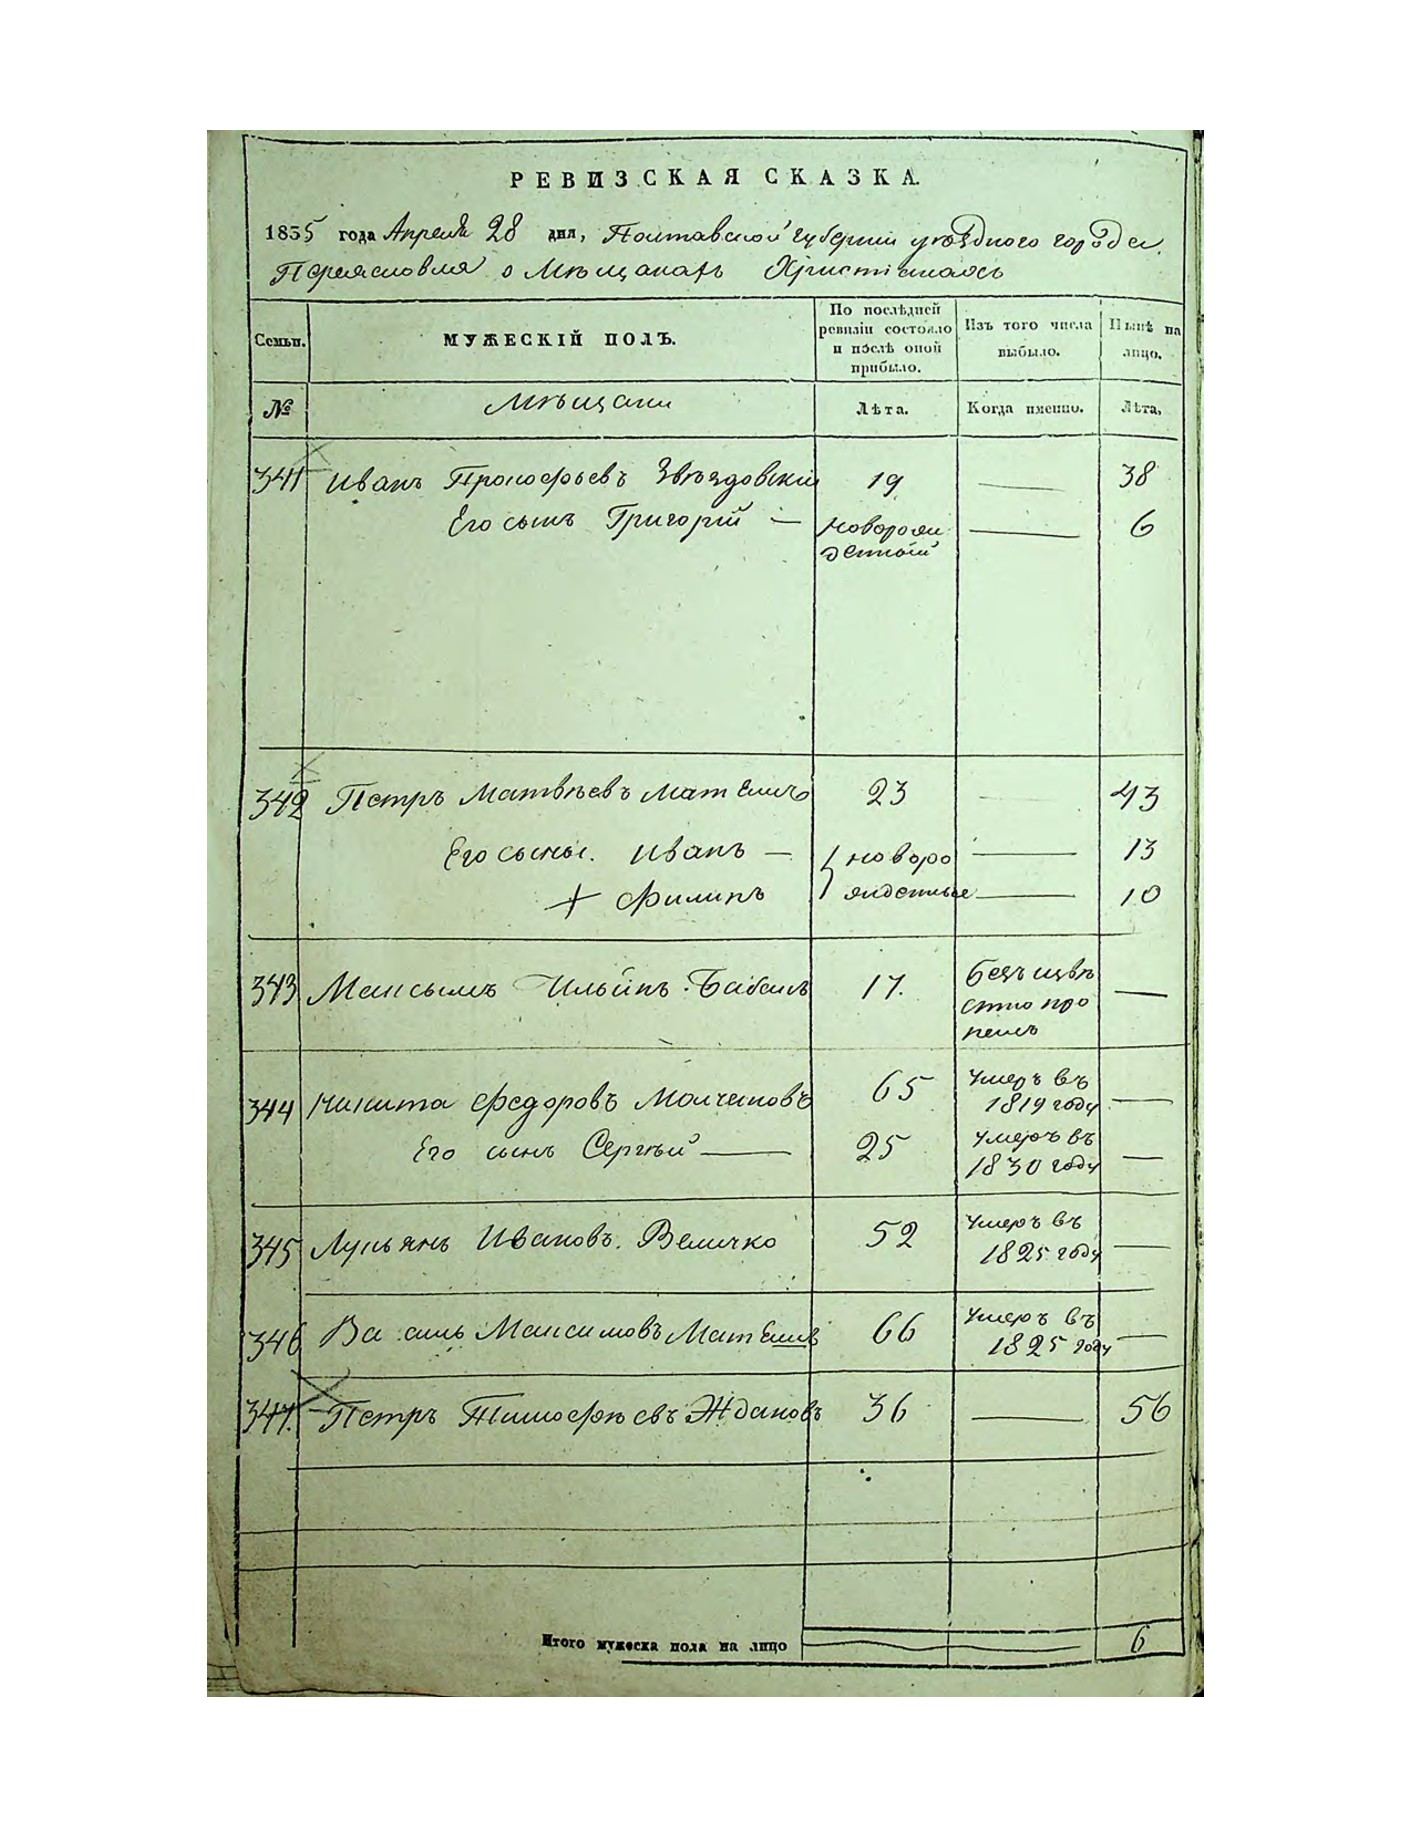 РЕВИЗСКАЯ СКАЗКА.
1835 года Апреля 28 дня, Полтавской губернии уѣздного города
Переяславля о Мѣщанахъ Христіанахъ
Семьи.
МУЖЕСКІЙ ПОЛЪ.
По послѣдней ревизіи состояло и послѣ оной прибыло.
Изъ того числа выбыло.
Нынѣ на лицо.
№
Мѣщани
Лѣта.
Когда именно.
Лѣта.
341 Иванъ Прокофьевъ Звѣздовскій 19 — 38
Его сынъ Григорій — новорож — 6
денной
342 Петръ Матвѣевъ 23 — 43
Его сыны. Иванъ — новоро — 13
+ Филипъ жденные — 10
343 Максымъ Ильинъ Бабакъ 17. безъ извѣ —
стно про
палъ
344 Никита Федоровъ Молчановъ 65 умеръ въ —
1819 году
Его сынъ Сергѣй — 25 умеръ въ —
1830 году
345 Лукьянъ Ивановъ. Величко 52 умеръ въ —
1825 году
346 Василь Максимовъ 66 умеръ въ —
1825 году
347. Петръ Тимофѣевъ Ждановъ 36 — 56
Итого мужеска пола на лицо 6